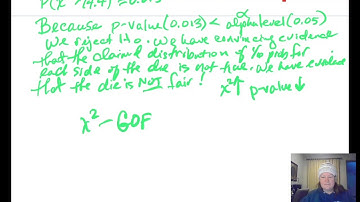 P(χ² > 14.4) = 0.013
Because p-value (0.013) < alpha level (0.05)
α
We reject Ho. We have convincing evidence
that the claimed distribution of 1/6 prob for
each side of the die is not true. We have evidence
that the die is NOT fair!
χ²↑ p-value↓
χ² - GOF